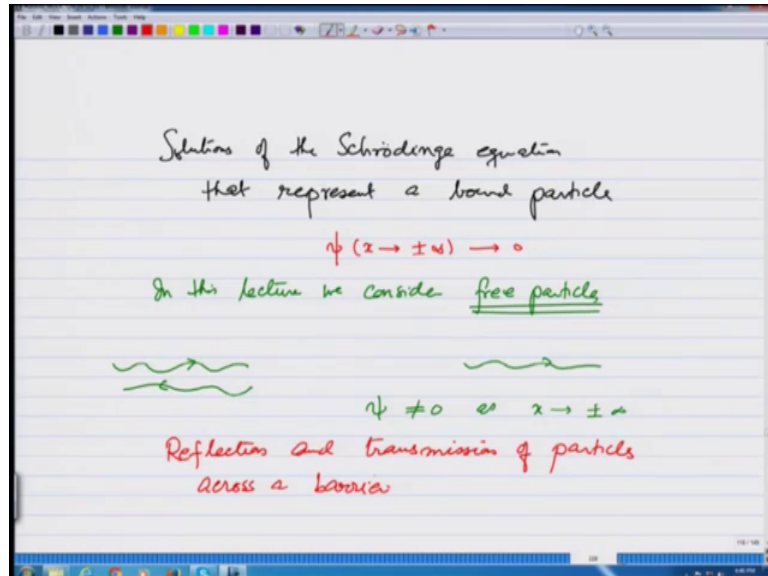 File Edit View Insert Actions Tools Help
Solutions of the Schrödinge equation
that represent a bound particle
ψ (x → ± ∞) → 0
In this lecture we consider free particles
ψ ≠ 0 as x → ± ∞
Reflection and transmission of particls
across a barrier